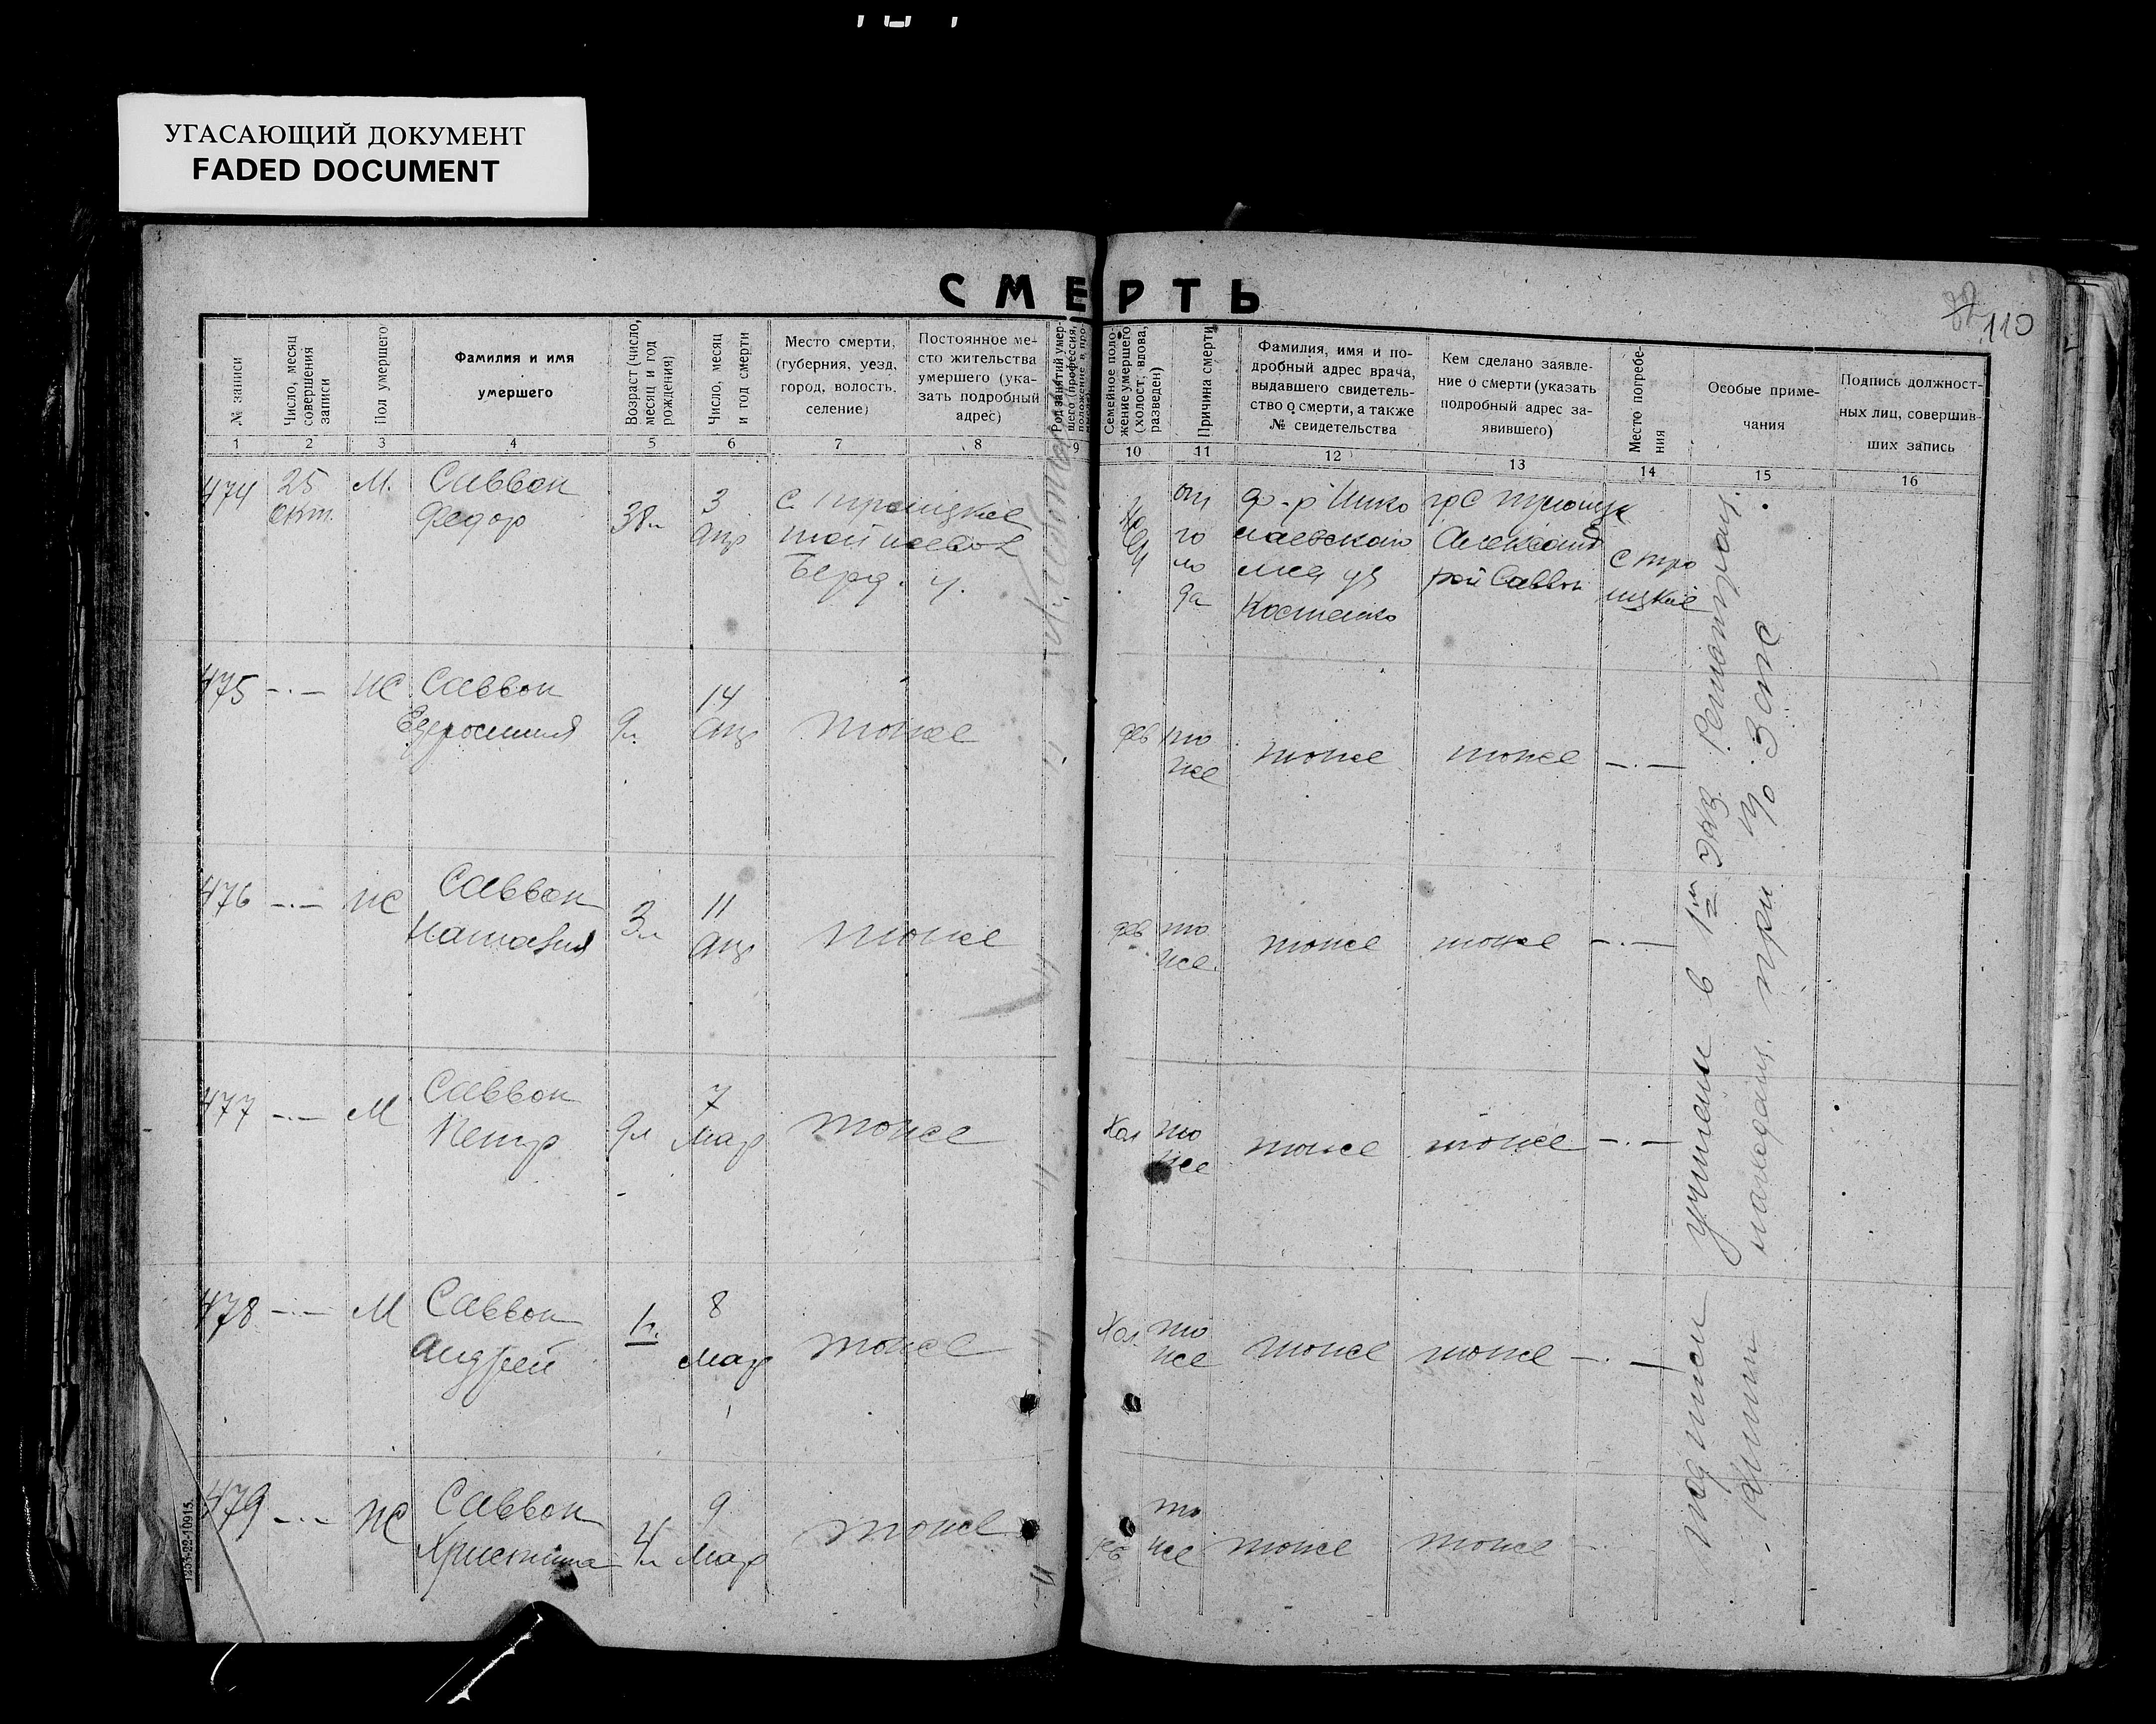 УГАСАЮЩИЙ ДОКУМЕНТ
FADED DOCUMENT
СМЕРТЬ
110
№ записи
Число, месяц совершения записи
Пол умершего
Фамилия и имя
умершего
Возраст (число, месяц и год рождения)
Число, месяц и год смерти
Место смерти,
(губерния, уезд,
город, волость,
селение)
Постоянное ме-
сто жительства
умершего (ука-
зать подробный
адрес)
Род занятий умер-
шего (профессия,
положение в про-
Семейное поло-
жение умершего
(холост, вдова,
разведен)
Причина смерти
Фамилия, имя и по-
дробный адрес врача,
выдавшего свидетель-
ство о смерти, а также
№ свидетельства
Кем сделано заявле-
ние о смерти (указать
подробный адрес за-
явившего)
Место погребе-
ния
Особые приме-
чания
Подпись должност-
ных лиц, совершив-
ших запись
1 2 3 4 5 6 7 8 9 10 11 12 13 14 15 16
474 25 окт. М. Саввон Федор 38л 3 апр с. Троицкое
Берд. у.
от го ло да
Костенко
Саввон
с Тро
ицкие
475 -.- Ж Саввон
Ефросиния 9л. 14 апр тоже дев то же тоже тоже -.-
476 -.- Ж Саввон
Наталия 3л 11 апр тоже дев то же тоже тоже -.-
477 -.- М Саввон
Петр 9л 7 мар тоже хол то же тоже тоже -.-
478 -.- М Саввон
Андрей 1г. 8 мар тоже хол то же тоже тоже -.-
479 -.- Ж Саввон
Христина 4л 9 мар тоже дев то же тоже тоже
подписи учинены в 1м экз.
при
1253-22-10915